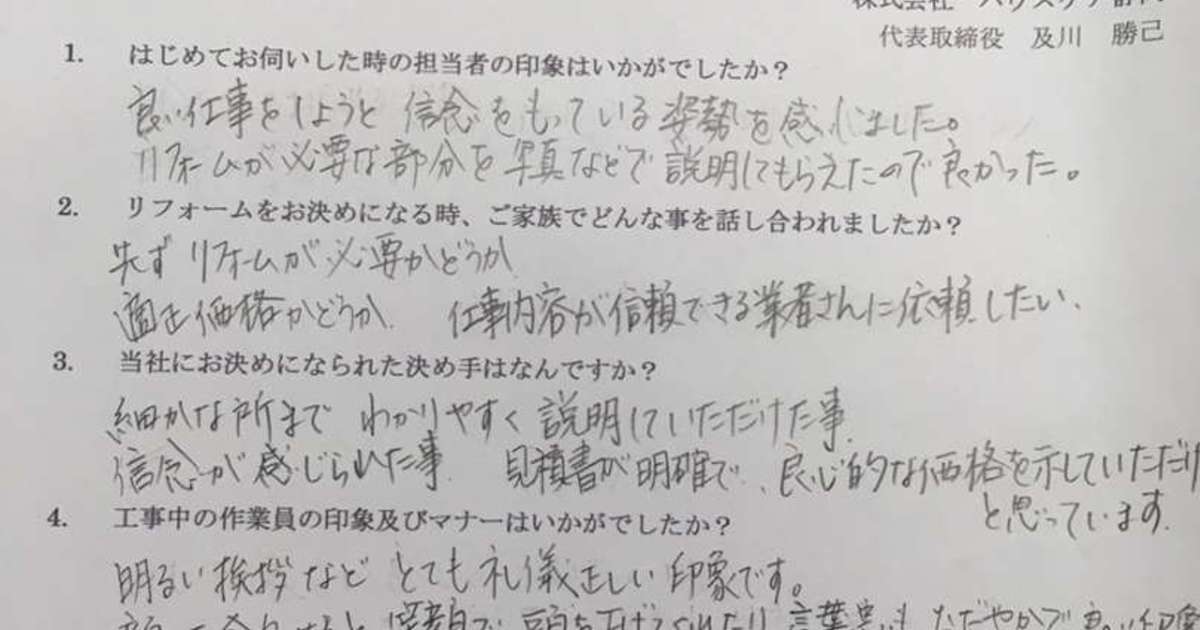 株式会社 ハウスケア
代表取締役 及川 勝己
1. はじめてお伺いした時の担当者の印象はいかがでしたか?
良い仕事をしようと 信念をもっている姿勢を感じました。
リフォームが必要な部分を写真などで説明してもらえたので良かった。
2. リフォームをお決めになる時、ご家族でどんな事を話し合われましたか?
先ず リフォームが必要かどうか
適正価格かどうか 仕事内容が信頼できる業者さんに依頼したい、
3. 当社にお決めになられた決め手はなんですか?
細かな所まで わかりやすく説明していただけた事
信念が感じられた事 見積書が明確で、良心的な価格を示していただけ
と思っています。
4. 工事中の作業員の印象及びマナーはいかがでしたか?
明るい挨拶など とても礼儀正しい印象です。
笑顔で 頭を下げられたり 言葉